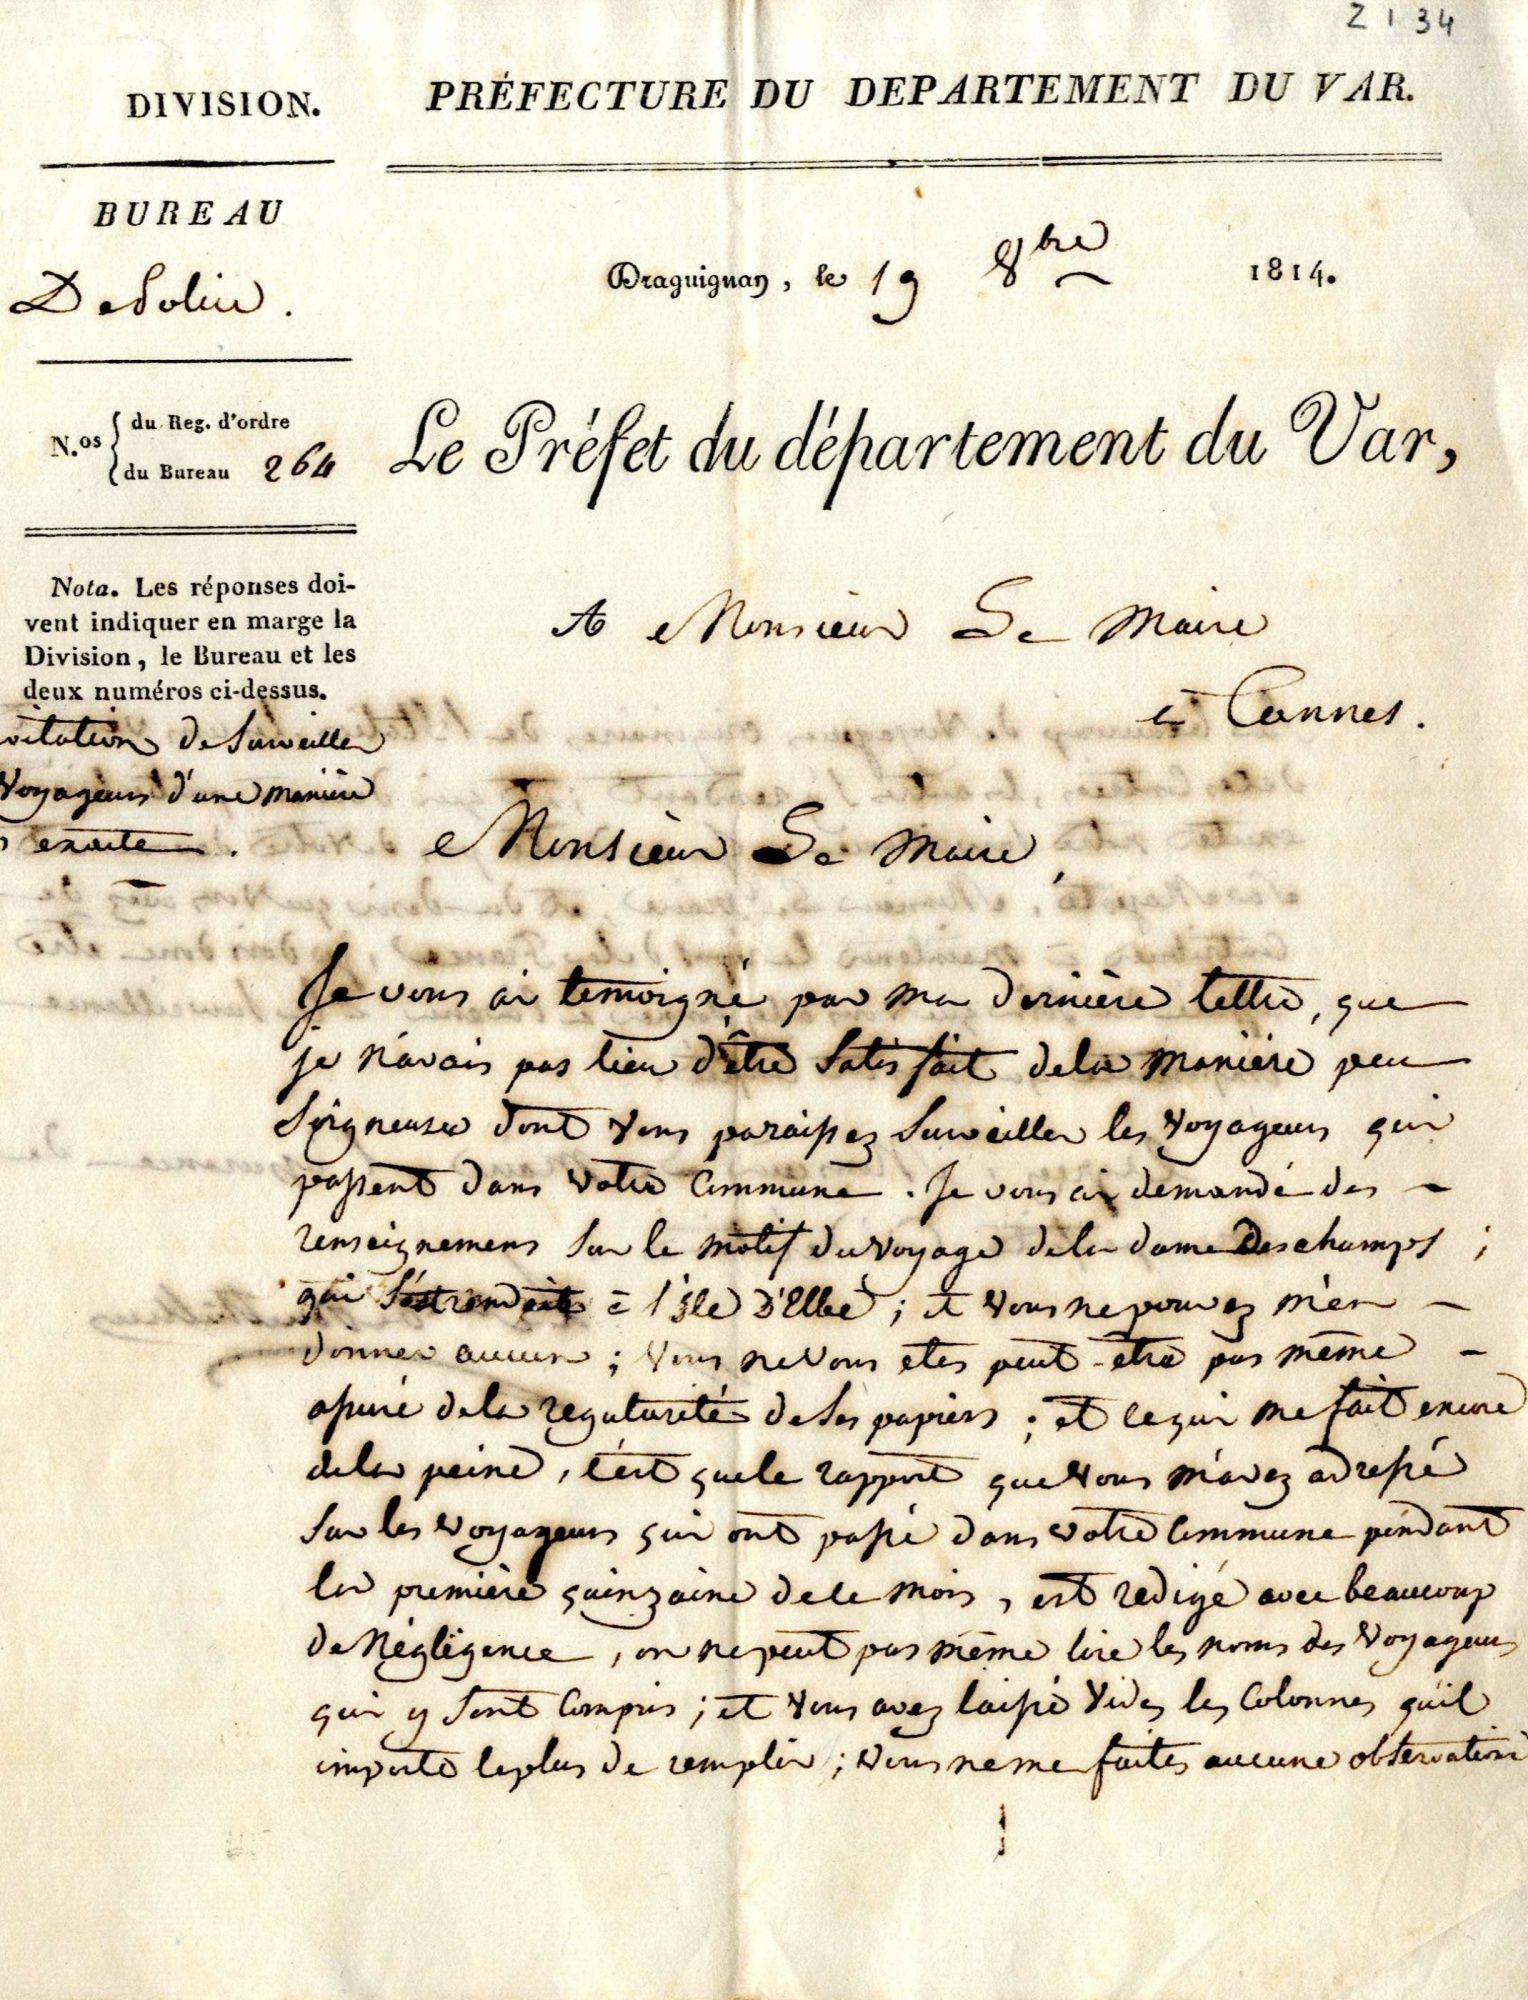 2 1 34
DIVISION.
PRÉFECTURE DU DEPARTEMENT DU VAR.
BUREAU
De Police.
Draguignan, le 19 8bre 1814.
N.os du Reg. d'ordre
du Bureau 264
Le Préfet du département du Var,
Nota. Les réponses doi-
vent indiquer en marge la
Division, le Bureau et les
deux numéros ci-dessus.
A Monsieur Le Maire
à Cannes.
vitation de Surveiller
Voyageurs d'une maniere
exacte.
Monsieur Le Maire,
Je vous ai temoigné par ma dernière lettre, que
je n'avais pas lieu d'être Satisfait dela manière peu
Soigneuse dont Vous paraissez Surveiller les Voyageurs qui
passent dans Votre Commune. Je vous ai demandé des
renseignemens Sur le motif du voyage dela dame Deschamps ;
qui à l'isle D'Elbe ; et Vous ne pouvez m'en
donner aucun ; Vous ne Vous etes peut-être pas même
assuré dela regularité de Ses papiers ; et ce qui me fait encore
dela peine, c'est que le rapport que Vous m'avez adressé
Sur les Voyageurs qui ont passé dans Votre Commune pendant
la première quinzaine de ce mois, est redigé avec beaucoup
de Négligence, on ne peut pas même lire les noms des Voyageurs
qui y Sont Compris ; et Vous avez laissé Vides les Colonnes qu'il
importe le plus de remplir ; Vous ne me faites aucune observation